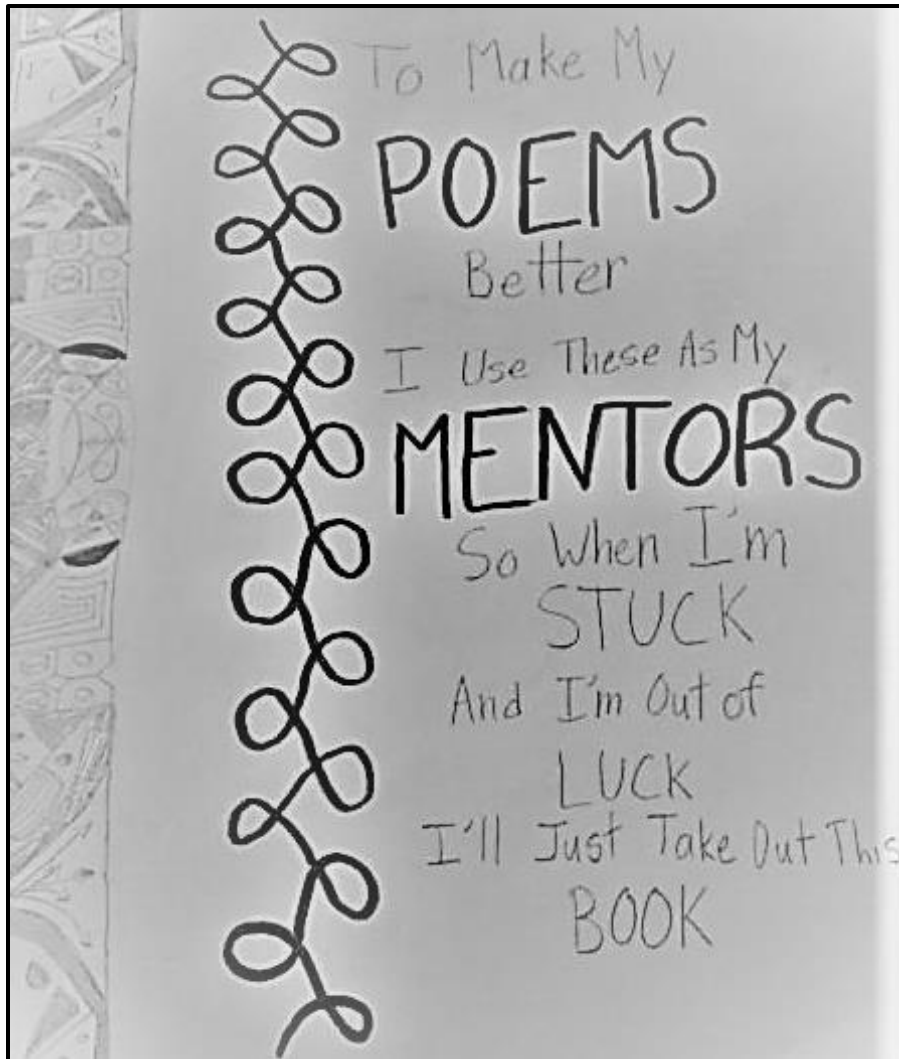 To Make My
POEMS
Better
I Use These As My
MENTORS
So When I'm
STUCK
And I'm Out of
LUCK
I'll Just Take Out This
BOOK